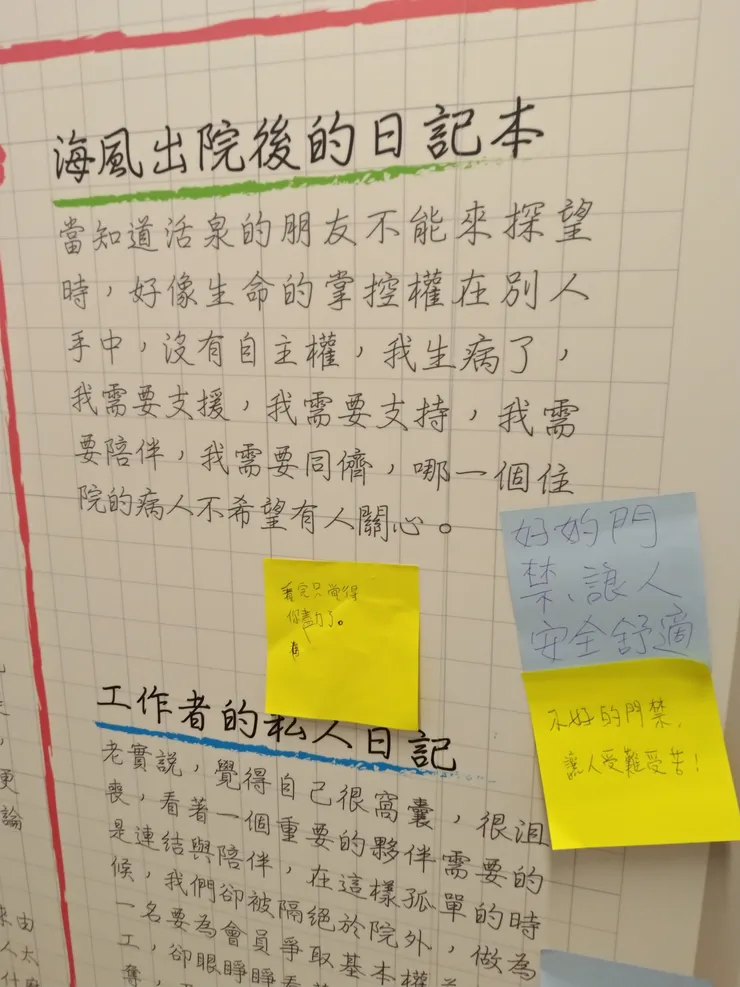 海風出院後的日記本
當知道活泉的朋友不能來探望
時，好像生命的掌控權在別人
手中，沒有自主權，我生病了，
我需要支援，我需要支持，我需
要陪伴，我需要同儕，哪一個住
院的病人不希望有人關心。
看完只覺得
你盡力了。
好的門
禁、讓人
安全舒適
不好的門禁，
讓人受難受苦！
工作者的私人日記
老實說，覺得自己很窩囊，很沮
喪，看著一個重要的夥伴需要的
是連結與陪伴，在這樣孤單的時
候，我們卻被隔絕於院外，做為
一名要為會員爭取基本權
工，卻眼睜睜看
奪，
更
論
來由
人太